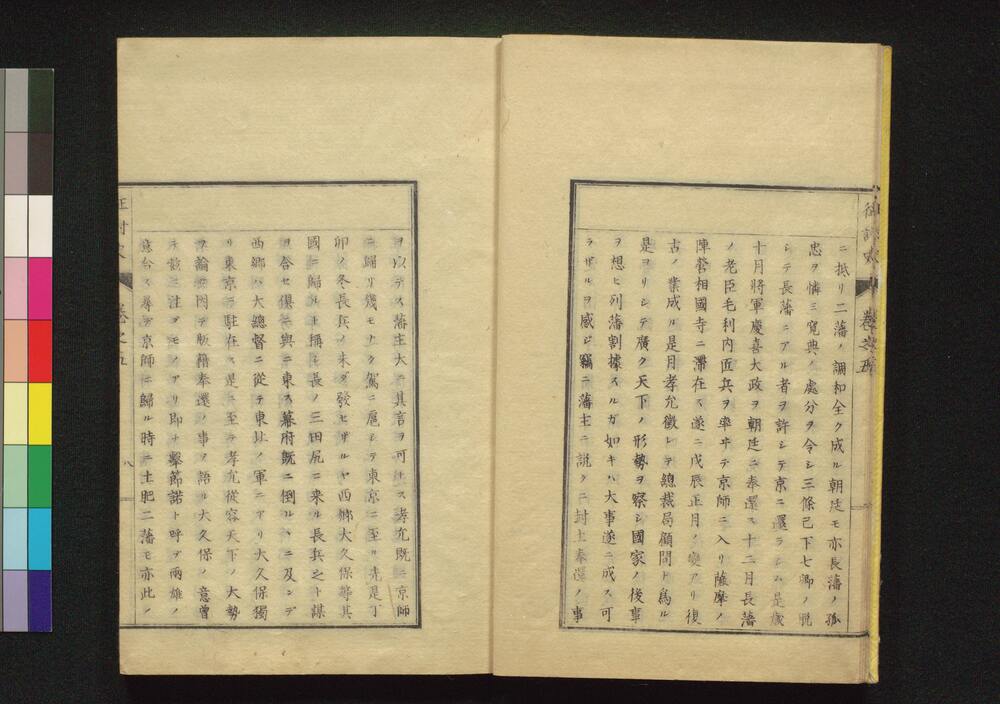 ニ抵リ二藩ノ調和全ク成ル朝廷モ亦長藩ノ孤
忠ヲ憐ミ寛典ノ處分ヲ令シ三條已下七卿ノ脱
シテ長藩ニアル者ヲ許シテ京ニ還ラシム是歳
十月將軍慶喜大政ヲ朝廷ニ奉還ス十二月長藩
ノ老臣毛利内匠兵ヲ率ヰテ京師ニ入リ薩摩ノ
陣營相國寺ニ滞在ス遂ニ戊辰正月ノ變アリ復
古ノ業成ル是月孝允徴レテ總裁局顧問ト為ル
是ヨリシテ廣ク天下ノ形勢ヲ察シ國家ノ後事
ヲ想ヒ列藩割據スルガ如キハ大事遂ニ成ス可
ラザルヲ感ジ竊ニ藩主ニ説クニ封土奉還ノ事
ヲ以テス藩主大ニ其言ヲ可トス孝允既ニ京師
ニ歸リ幾モナク駕ニ扈シテ東京ニ至ル先是丁
卯ノ冬長兵ノ未ダ發セザルヤ西郷大久保等其
國ニ歸ルト稱シ長ノ三田尻ニ来ル長兵之ト謀
ヲ合セ倶ニ與ニ東ス幕府既ニ倒ルヽニ及ンデ
西郷ハ大總督ニ從テ東北ノ軍ニアリ大久保獨
リ東京ニ駐在ス是ニ至テ孝允從容天下ノ大勢
ヲ論ジ因テ版籍奉還ノ事ヲ語ル大久保ノ意曽
テ茲ニ注グモノアリ即ナ擊節諾ト呼ブ兩雄ノ
意合ス尋デ京師ニ歸ル時ニ土肥二藩モ亦此ノ
卷之五
八